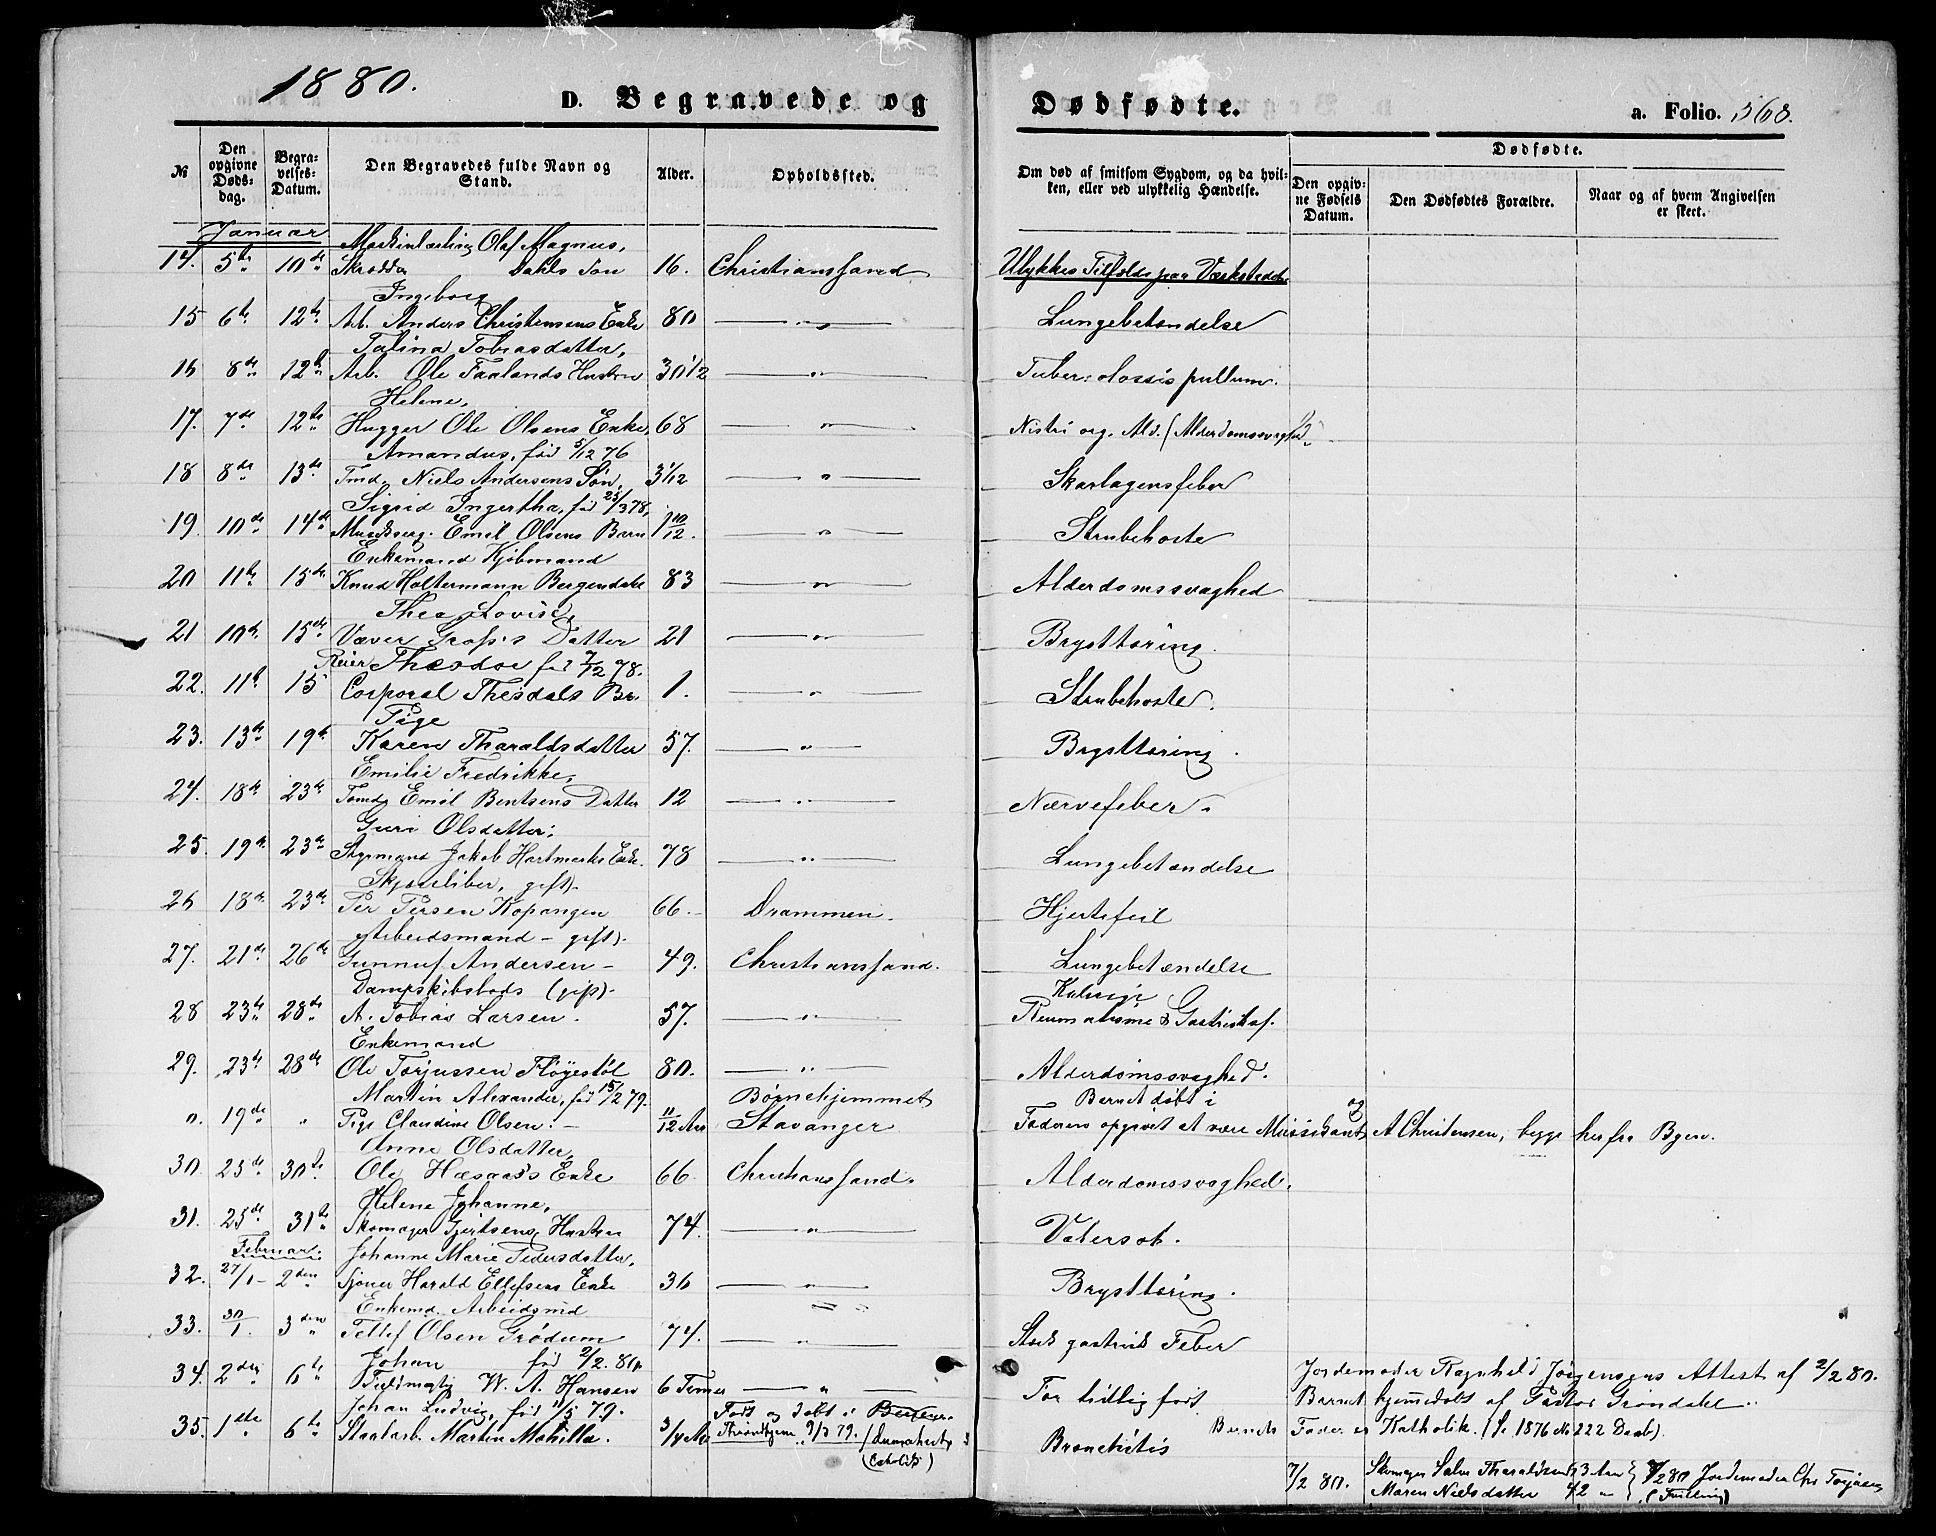 1880.
D. Begravede og Dødfødte.
a. Folio. 368.
№
Den opgivne Døds-dag.
Begra-velses-Datum.
Den Begravedes fulde Navn og Stand.
Alder.
Opholdssted.
Om død af smitsom Sygdom, og da hvil-ken, eller ved ulykkelig Hændelse.
Dødfødte.
Den opgiv-ne Fødsels Datum.
Den Dødfødtes Forældre.
Naar og af hvem Angivelsen er skeet.
Januar
Olaf Magnus,
14. 5te 10de Skrædder Dahls Søn 16. Christianssand Ulykkes Tilfælde paa Værkstedet
Ingeborg
15 6te 12te Arb. Anders Christensens Enke 80 — " — Lungebetændelse
Talina Tobiasdatter,
16 8de 12te Arb. Ole Faalands Hustru 30 1/2 — " —
Helene,
17. 7de 12te Hugger Ole Olsens Enke, 68 — " — (Alderdomssvaghed
Amandus, fød 5/12 76
18 8de 13de Tmd. Niels Andersens Søn, 3 1/12 — " — Skarlagensfeber
Sigrid Ingertha, fød 23/3 78,
19. 10de 14de Emil Olsens Barn 1 10/12. — " — Strubehoste
Enkemand Kjøbmand
20 11te 15de Knud Holtermann Bergendahl 83 — " — Alderdomssvaghed
Thea Lovise,
21 10de 15de Væver Datter 21 — " — Brysttæring.
Reier Theodor fød 7/12 78.
22. 11te 15 Corporal Thesdals Br. 1. — " — Strubehoste.
Pige
23. 13de 19de Karen Tharaldsdatter 57. — " — Brysttæring.
Emilie Fredrikke,
24. 18de 23de Tømd. Emil Bentsens Datter 12 — " — Nærvefeber.
Guri Olsdatter,
25. 19de 23de Styrmand Jakob Hartmarks Enke. 78 — " — Lungebetændelse
gift).
26 18de 23de Per Persen Kopangen 66. Drammen. Hjertefeil
Arbeidsmand — gift).
27. 21de 26de Gunnuf Andersen — 49. Christianssand. Lungebetændelse
Dampskibsbaads (gift).
28 23de 28de A. Tobias Larsen. 57. — " —
Enkemand
29. 23de 28de Ole Torjussen Fløgestøl 80. — " — Alderdomssvaghed.
Martin Alexander, fød 15/2 79. Børnehjemmet Barnet døbt i
". 19de " Pige Claudine Olsen. — 11/12 Aar Stavanger Faderen opgivet at være A Christensen, begge her fra Byen.
Anne Olsdatter,
30. 25de 30te Ole Enke 66 Christianssand. Alderdomssvaghed.
Helene Johanne,
31. 25de 31te Skomager Gjertsens Hustru 74. — " — Vatersot.
Februar. Johanne Marie Pedersdatter,
32. 27/1 — 2den Sjøner Harald Ellefsens Enke 36 — " — Brysttæring.
Enkemd. Arbeidsmd
33. 30/1. 3den Tellef Olsen Grødum 74. — " — gastrisk Feber
Johan fød 2/2. 80.
34. 2den 6te W. A. Hansen 6 Timer — " — For tidlig født
Jordemoder Ragnhild Jørgensens Attest af 2/2 80.
Barnet hjemmedøbt af Pastor Grøndahl.
Johan Ludvig, fød 11/5 79. Født og døbt i
35. 1ste 6te Staalarb. Martin 3/4 Aar (Catholik) Bronchitis
Barnets Fader er Katholik. (Se 1876 No 222 Daab).
7/2 80. Skomager Tharaldsen 43 Aar
Maren Nielsdatter 42 "
/2 80 Jordemoder Chr.
(Tvilling)